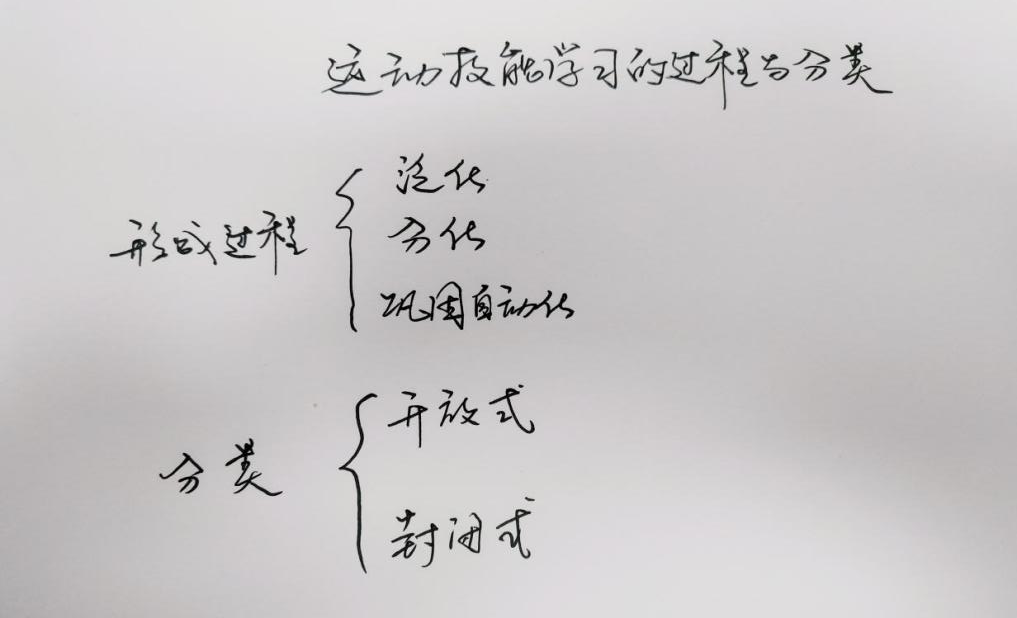 运动技能学习的过程与分类
形成过程
泛化
分化
巩固自动化
分类
开放式
封闭式